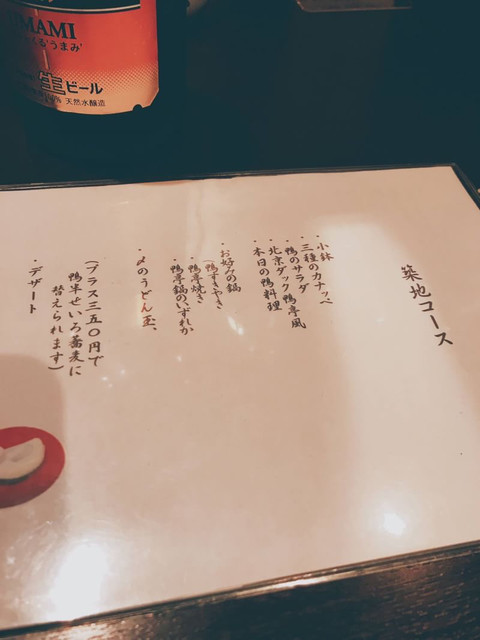 MAMI
うまみ
生ビール
天然水醸造
築地コース
・小鉢
・三種のカナッペ
・鴨のサラダ
・北京ダック鴨亭風
・本日の鴨料理
・お好みの鍋
(鴨すきやき
・鴨亭焼き
・鴨亭鍋のいずれか
・〆のうどん玉、
(プラス三五〇円で
鴨半せいろ蕎麦に
替えられます)
・デザート